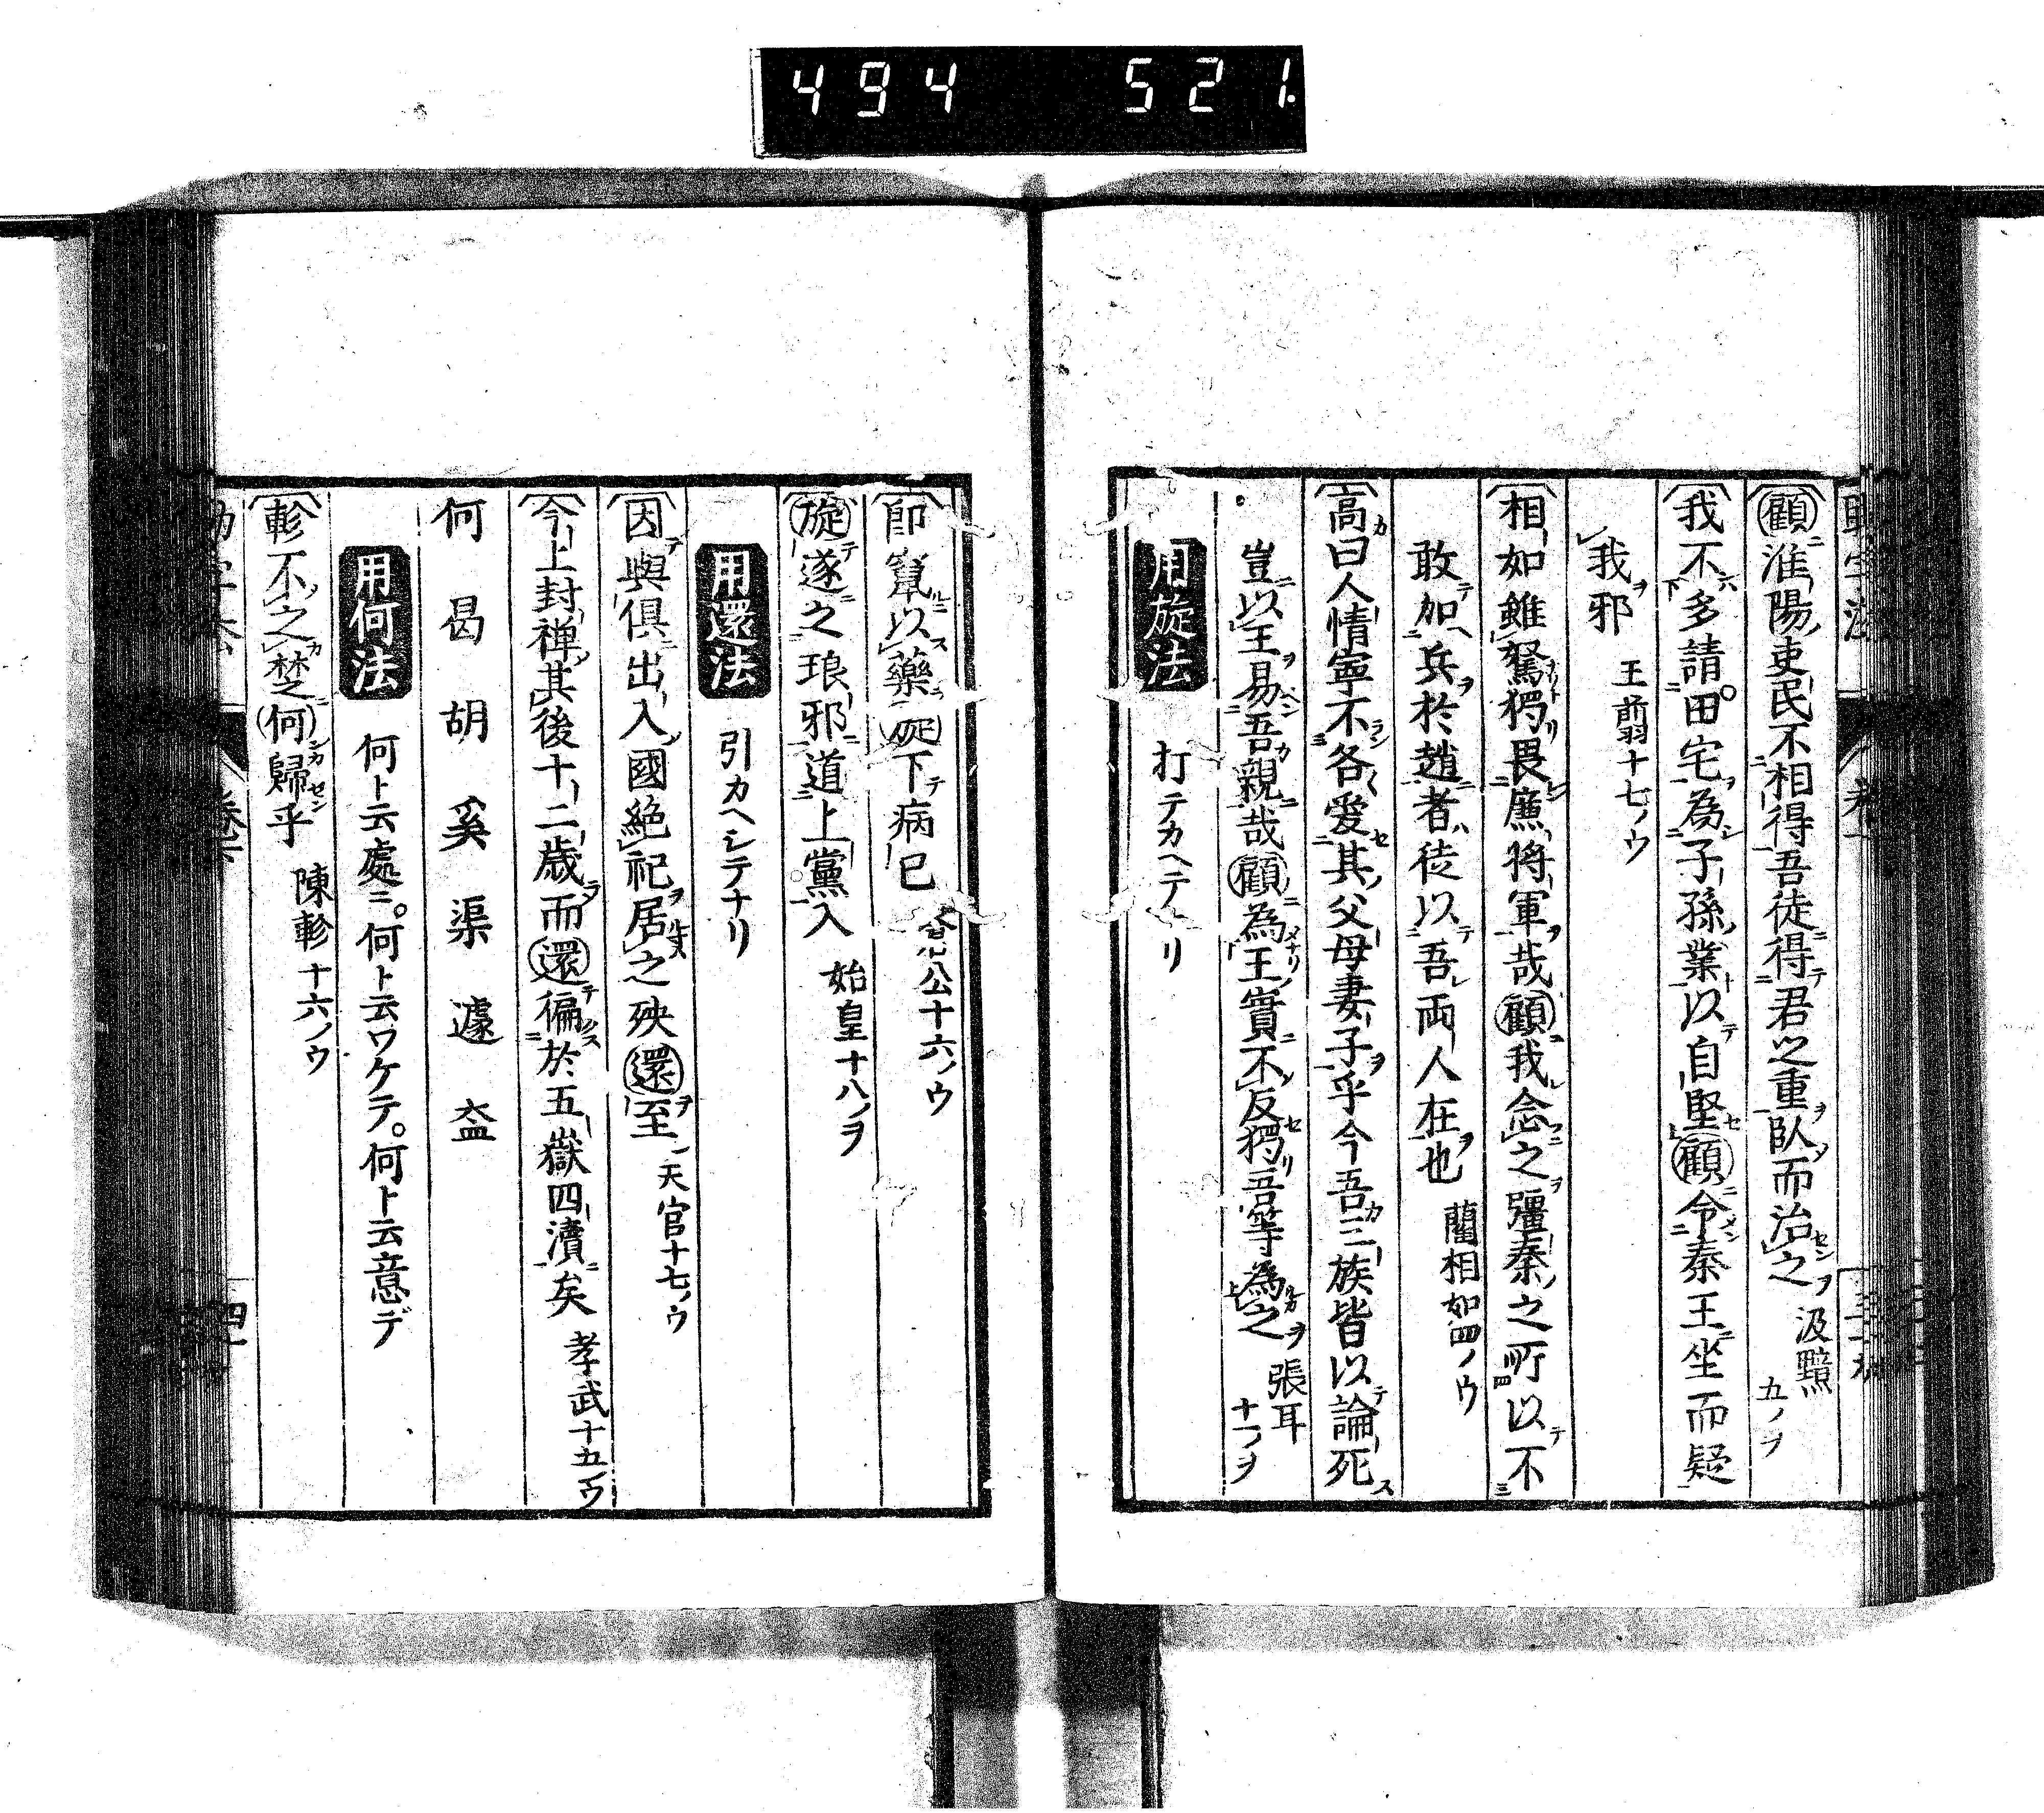 494 521.
顧淮陽吏民不相得吾徒得君之重臥而治之 汲黯五ノヲ
我不多請田宅為子孫業以自堅顧令秦王坐而疑
我邪 王翦十七ノウ
相如雖駑獨畏廉將軍哉顧我念之彊秦之所以不
敢加兵於趙者徒以吾両人在也 藺相如四ノウ
高曰人情寧不各爱其父母妻子乎今吾三族皆以論死
豈以王易吾親哉顧為王實不反獨吾等為之 張耳十一ノヲ
用旋法 打テカヘテナリ
即竄以藥旋下病已 倉公十六ノウ
旋遂之琅邪道上黨入 始皇十八ノヲ
用還法 引カヘシテナリ
因與俱出入國絶祀居之殃還至 天官十七ノウ
今上封禅其後十二歳而還徧於五嶽四瀆矣 孝武十五ノウ
何 曷 胡 奚 渠 遽 盇
用何法 何ト云處ニ。何ト云ワケテ。何ト云意デ
軫不之楚何歸乎 陳軫十六ノウ